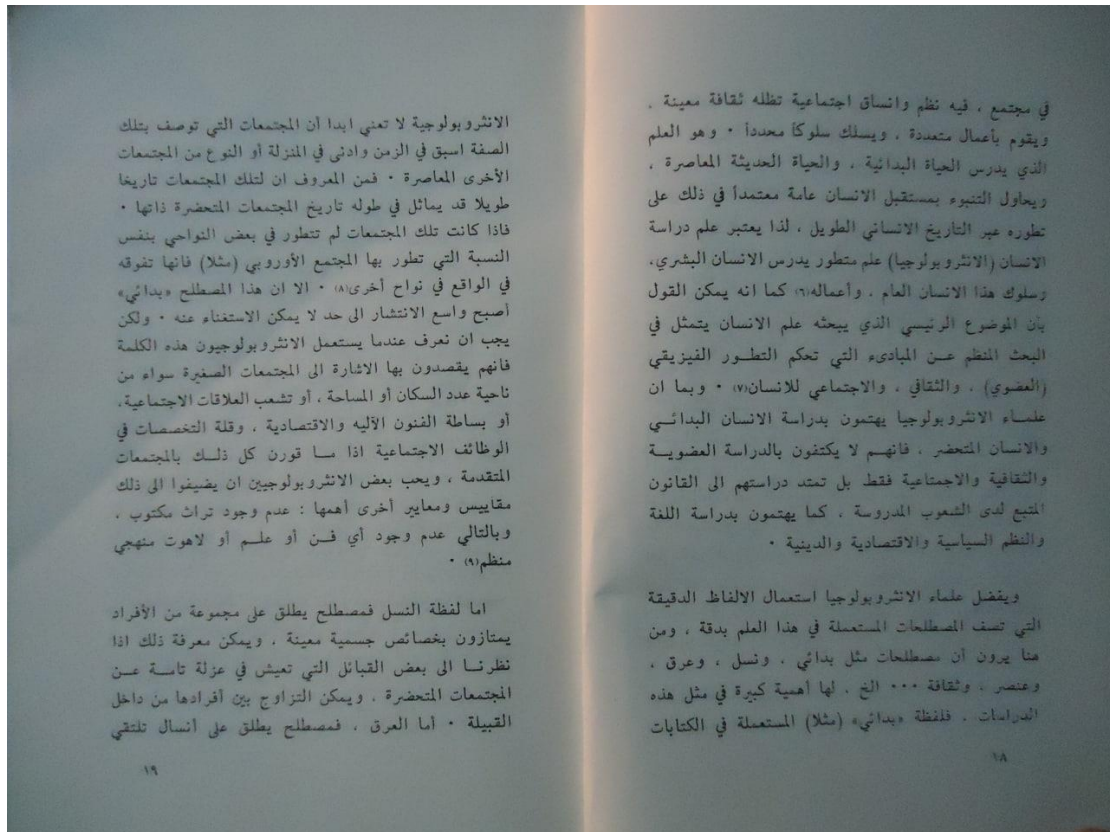 في مجتمع ، فيه نظم وانساق اجتماعية تظله ثقافة معينة .
ويقوم بأعمال متعددة ، ويسلك سلوكاً محدداً ٠ وهو العلم
الذي يدرس الحياة البدائية ، والحياة الحديثة المعاصرة ،
ويحاول التنبوء بمستقبل الانسان عامة معتمداً في ذلك على
تطوره عبر التاريخ الانساني الطويل ، لذا يعتبر علم دراسة
الانسان (الانثروبولوجيا) علم متطور يدرس الانسان البشري،
وسلوك هذا الانسان العام ، وأعماله(٦) كما انه يمكن القول
بأن الموضوع الرئيسي الذي يبحثه علم الانسان يتمثل في
البحث المنظم عن المبادىء التي تحكم التطور الفيزيقي
(العضوي) ، والثقافي ، والاجتماعي للانسان(٧) ٠ وبما ان
علماء الانثروبولوجيا يهتمون بدراسة الانسان البدائي
والانسان المتحضر ، فانهم لا يكتفون بالدراسة العضوية
والثقافية والاجتماعية فقط بل تمتد دراستهم الى القانون
المتبع لدى الشعوب المدروسة ، كما يهتمون بدراسة اللغة
والنظم السياسية والاقتصادية والدينية ٠
ويفضل علماء الانثروبولوجيا استعمال الالفاظ الدقيقة
التي تصف المصطلحات المستعملة في هذا العلم بدقة ، ومن
هنا يرون أن مصطلحات مثل بدائي ، ونسل ، وعرق ،
وعنصر ، وثقافة ٠٠٠ الخ . لها أهمية كبيرة في مثل هذه
الدراسات . فلفظة «بدائي» (مثلا) المستعملة في الكتابات
١٨
الانثروبولوجية لا تعني ابدا أن المجتمعات التي توصف بتلك
الصفة اسبق في الزمن وادنى في المنزلة أو النوع من المجتمعات
الأخرى المعاصرة ٠ فمن المعروف ان لتلك المجتمعات تاريخا
طويلا قد يماثل في طوله تاريخ المجتمعات المتحضرة ذاتها ٠
فاذا كانت تلك المجتمعات لم تتطور في بعض النواحي بنفس
النسبة التي تطور بها المجتمع الأوروبي (مثلا) فانها تفوقه
في الواقع في نواح أخرى(٨) ٠ الا ان هذا المصطلح «بدائي»
أصبح واسع الانتشار الى حد لا يمكن الاستغناء عنه ٠ ولكن
يجب ان نعرف عندما يستعمل الانثروبولوجيون هذه الكلمة
فانهم يقصدون بها الاشارة الى المجتمعات الصغيرة سواء من
ناحية عدد السكان أو المساحة ، أو تشعب العلاقات الاجتماعية،
أو بساطة الفنون الآليه والاقتصادية ، وقلة التخصصات في
الوظائف الاجتماعية اذا ما قورن كل ذلك بالمجتمعات
المتقدمة ، ويحب بعض الانثروبولوجيين ان يضيفوا الى ذلك
مقاييس ومعايير أخرى أهمها : عدم وجود تراث مكتوب ،
وبالتالي عدم وجود أي فن أو علم أو لاهوت منهجي
منظم(٩) ٠
اما لفظة النسل فمصطلح يطلق على مجموعة من الأفراد
يمتازون بخصائص جسمية معينة ، ويمكن معرفة ذلك اذا
نظرنا الى بعض القبائل التي تعيش في عزلة تامة عن
المجتمعات المتحضرة . ويمكن التزاوج بين أفرادها من داخل
القبيلة ٠ أما العرق ، فمصطلح يطلق على أنسال تلتقي
١٩